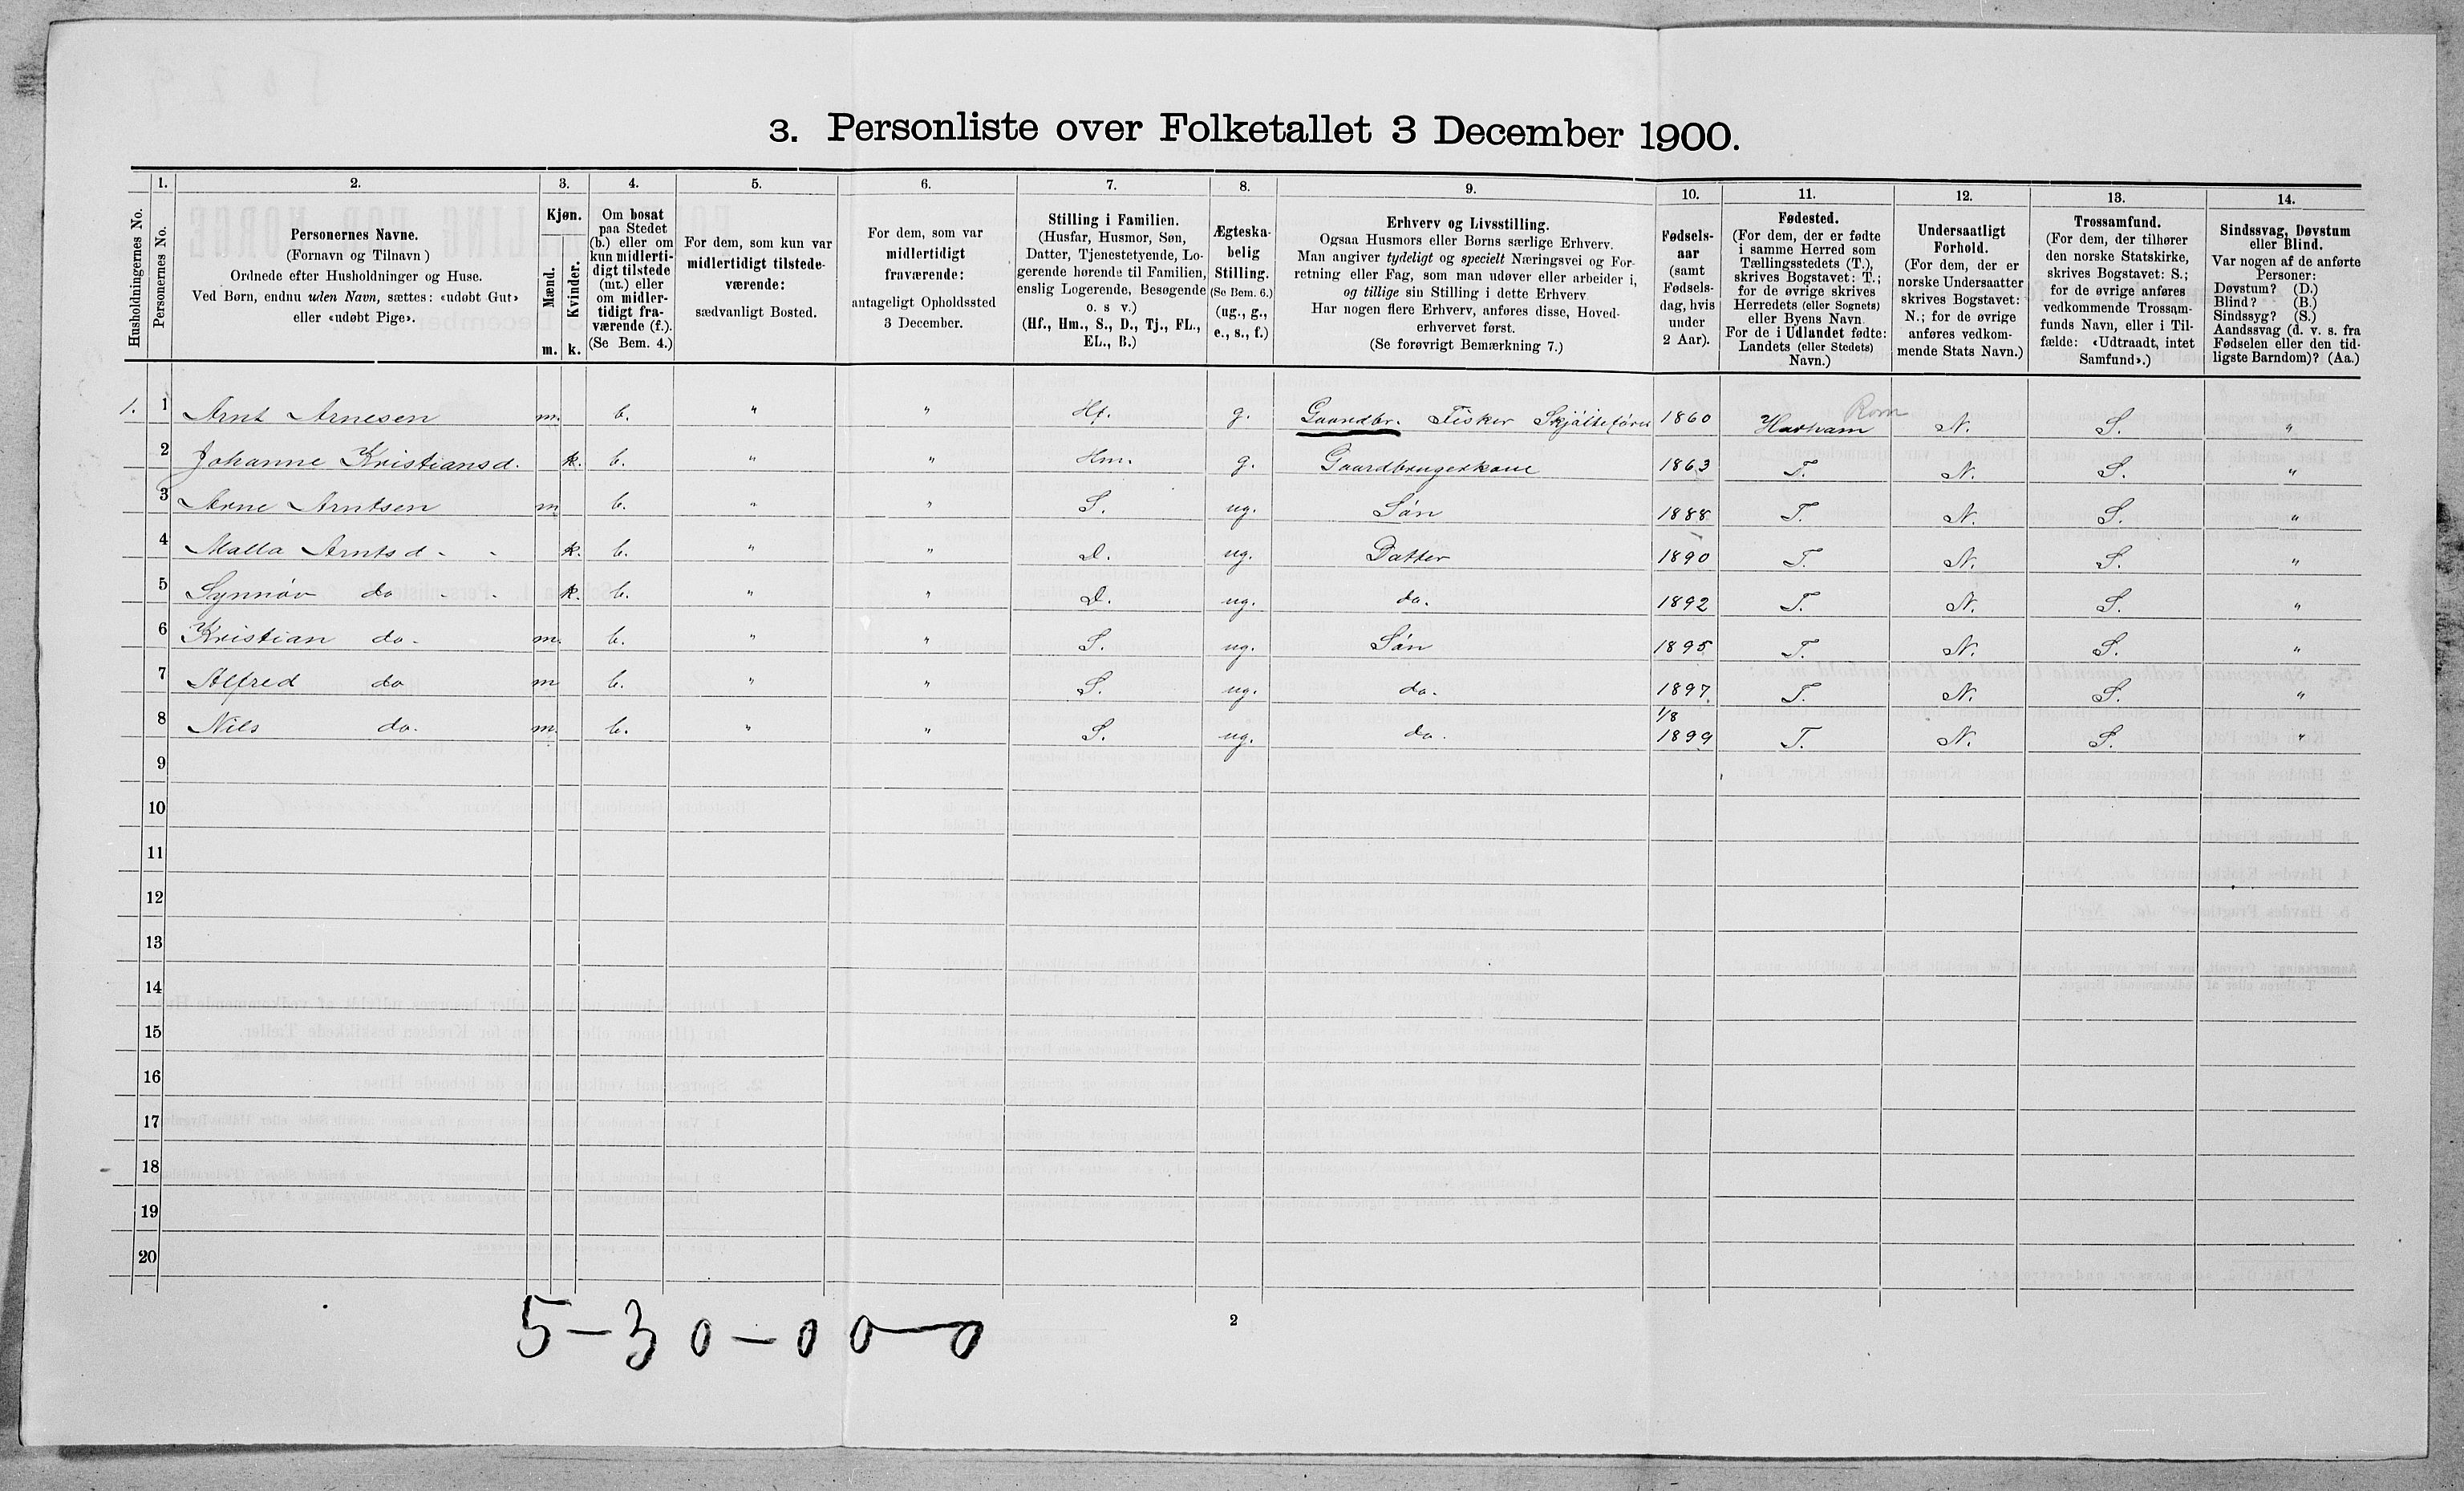 3. Personliste over Folketallet 3 December 1900.
Husholdningernes No.
1.
Personernes No.
2.
Personernes Navne.
(Fornavn og Tilnavn )
Ordnede efter Husholdninger og Huse.
Ved Børn, endnu uden Navn, sættes: «udøbt Gut»
eller «udøbt Pige».
3.
Kjøn.
Mænd.
m.
Kvinder.
k.
4.
Om bosat
paa Stedet
(b.) eller om
kun midlerti-
digt tilstede
(mt.) eller
om midler-
tidigt fra-
værende (f.).
(Se Bem. 4.)
5.
For dem, som kun var
midlertidigt tilstede-
værende:
sædvanligt Bosted.
6.
For dem, som var
midlertidigt
fraværende:
antageligt Opholdssted
3 December.
7.
Stilling i Familien.
(Husfar, Husmor, Søn,
Datter, Tjenestetyende, Lo-
gerende hørende til Familien,
enslig Logerende, Besøgende
o. s v.)
(Hf., Hm., S., D., Tj., FL.,
EL., B.)
8.
Ægteska-
belig
Stilling.
(Se Bem. 6.)
(ug., g.,
e., s., f.)
9.
Erhverv og Livsstilling.
Ogsaa Husmors eller Børns særlige Erhverv.
Man angiver tydeligt og specielt Næringsvei og For-
retning eller Fag, som man udøver eller arbeider i,
og tillige sin Stilling i dette Erhverv
Har nogen flere Erhverv, anføres disse, Hoved-
erhvervet først.
(Se forøvrigt Bemærkning 7.)
10.
Fødsels-
aar
(samt
Fødsels-
dag, hvis
under
2 Aar).
11.
Fødested.
(For dem, der er fødte
i samme Herred som
Tællingsstedets (T.),
skrives Bogstavet: T.;
for de øvrige skrives
Herredets (eller Sognets)
eller Byens Navn.
For de i Udlandet fødte:
Landets (eller Stedets)
Navn.)
12.
Undersaatligt
Forhold.
(For dem, der er
norske Undersaatter
skrives Bogstavet:
N.; for de øvrige
anføres vedkom-
mende Stats Navn.)
13.
Trossamfund.
(For dem, der tilhører
den norske Statskirke,
skrives Bogstavet: S.;
for de øvrige anføres
vedkommende Trossam-
funds Navn, eller i Til-
fælde: «Udtraadt, intet
Samfund».)
14.
Sindssvag, Døvstum
eller Blind.
Var nogen af de anførte
Personer:
Døvstum? (D.)
Blind? (B.)
Sindssyg? (S.)
Aandssvag (d. v. s. fra
Fødselen eller den tid-
ligste Barndom)? (Aa.)
1. 1 Arnt Arnesen m. b. " " Hf. g. Gaardbr. Fisker Skjøitefører 1860 Harham N. S. "
2 Johanne Kristiansd. k. b. " " Hm. g. Gaardbrugerkone 1863 T. N. S. "
3 Arne Arntsen m b. " " S. ug. Søn 1888 T. N. S. "
4 Malla Arntsd - - k. b. " " D. ug. Datter 1890 T. N. S. "
5 Synnøv do - - k. b. " " D. ug. do. 1892 T. N. S. "
6 Kristian do - m. b. " " S. ug. Søn 1895 T. N. S. "
7 Alfred do m b. " " S. ug. do. 1897 T. N. S. "
8 Nils do. m. b. " " S. ug. do. 1/8 1899 T. N. S. "
9
10
11
12
13
14
15
16
17
18
19
20
5-30-00-0
2